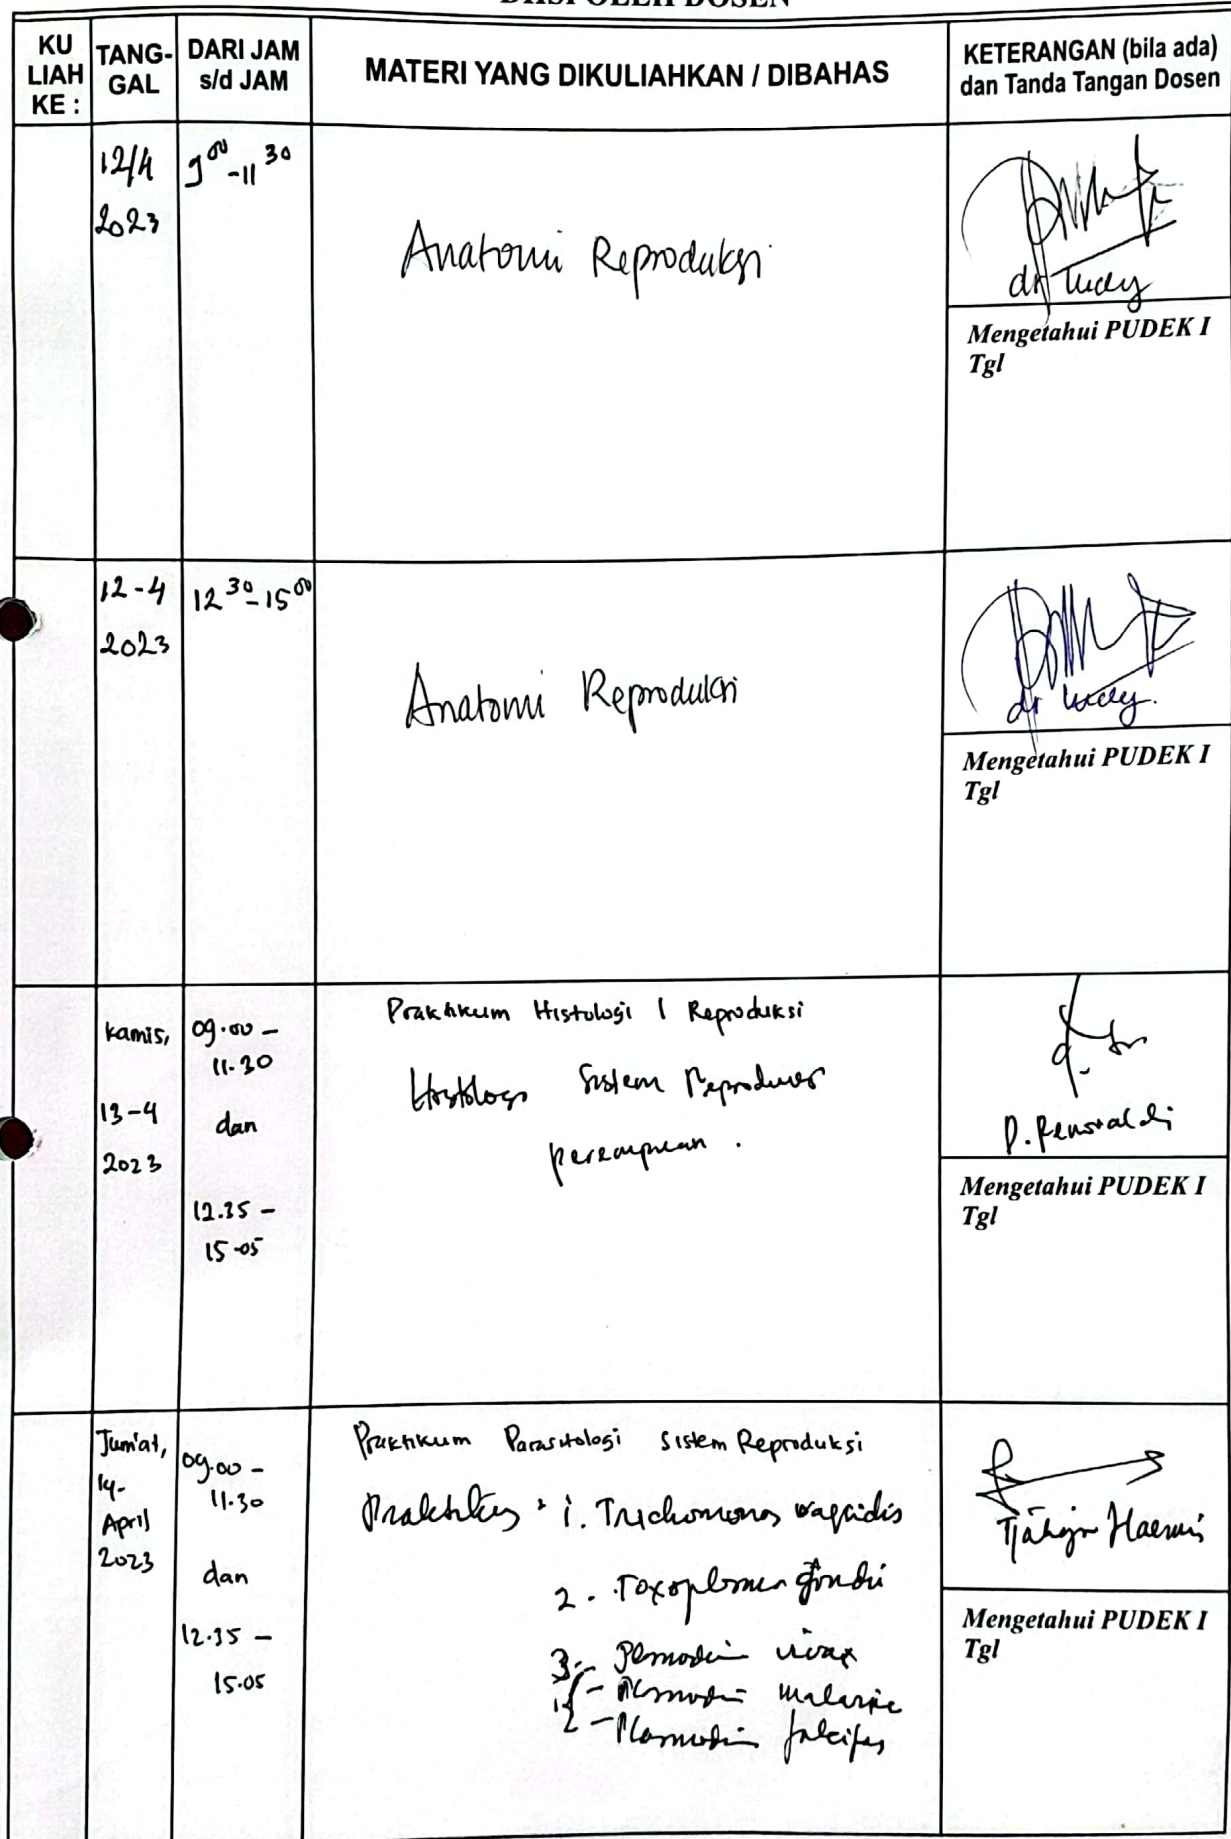 DIISI OLEH DOSEN
KU LIAH KE :
TANG-GAL
DARI JAM s/d JAM
MATERI YANG DIKULIAHKAN / DIBAHAS
KETERANGAN (bila ada) dan Tanda Tangan Dosen
12/4
2023
9.00 - 11 30
Anatomi Reproduksi
Mengetahui PUDEK I
Tgl
12-4
2023
12 30 - 15 00
Anatomi Reproduksi
Mengetahui PUDEK I
Tgl
Kamis,
13-4
2023
09.00 -
11.30
dan
12.35 -
15.05
Praktikum Histologi 1 Reproduksi
Histologi Sistem Reproduksi
perempuan .
Mengetahui PUDEK I
Tgl
Jum'at,
14-
April
2023
09.00 -
11.30
dan
12.35 -
15.05
Praktikum Parasitologi Sistem Reproduksi
1. Trichomonas vaginalis
2. Toxoplasma gondii
3. - Plasmodium vivax
- Plasmodium malariae
- Plasmodium falcifar
Mengetahui PUDEK I
Tgl